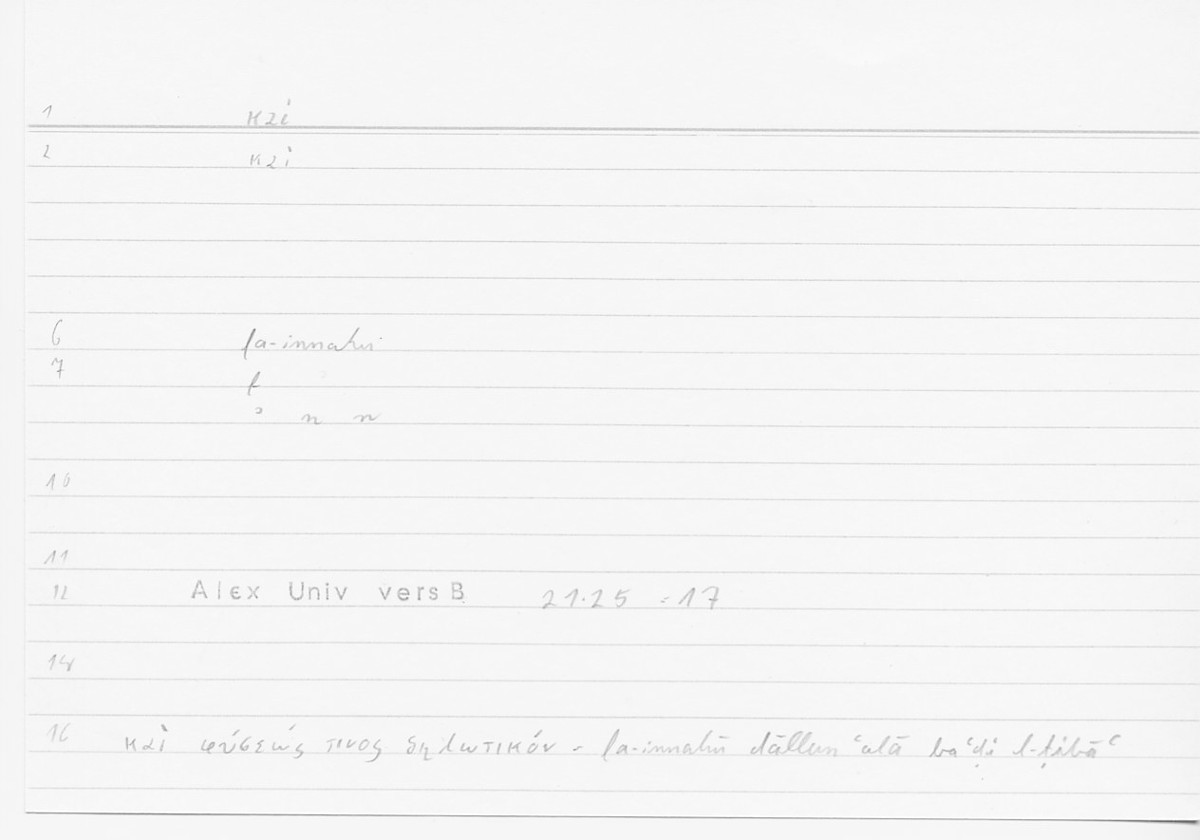 1 καὶ
2 καὶ
6 fa-innahū
7 f
ʾ n n
10
11
12 Alex Univ vers B 21.25 = 17
14
16 καὶ φύσεώς τινος δηλωτικόν - fa-innahū dāllun ʿalā baʿḍi l-ṭibāʿ